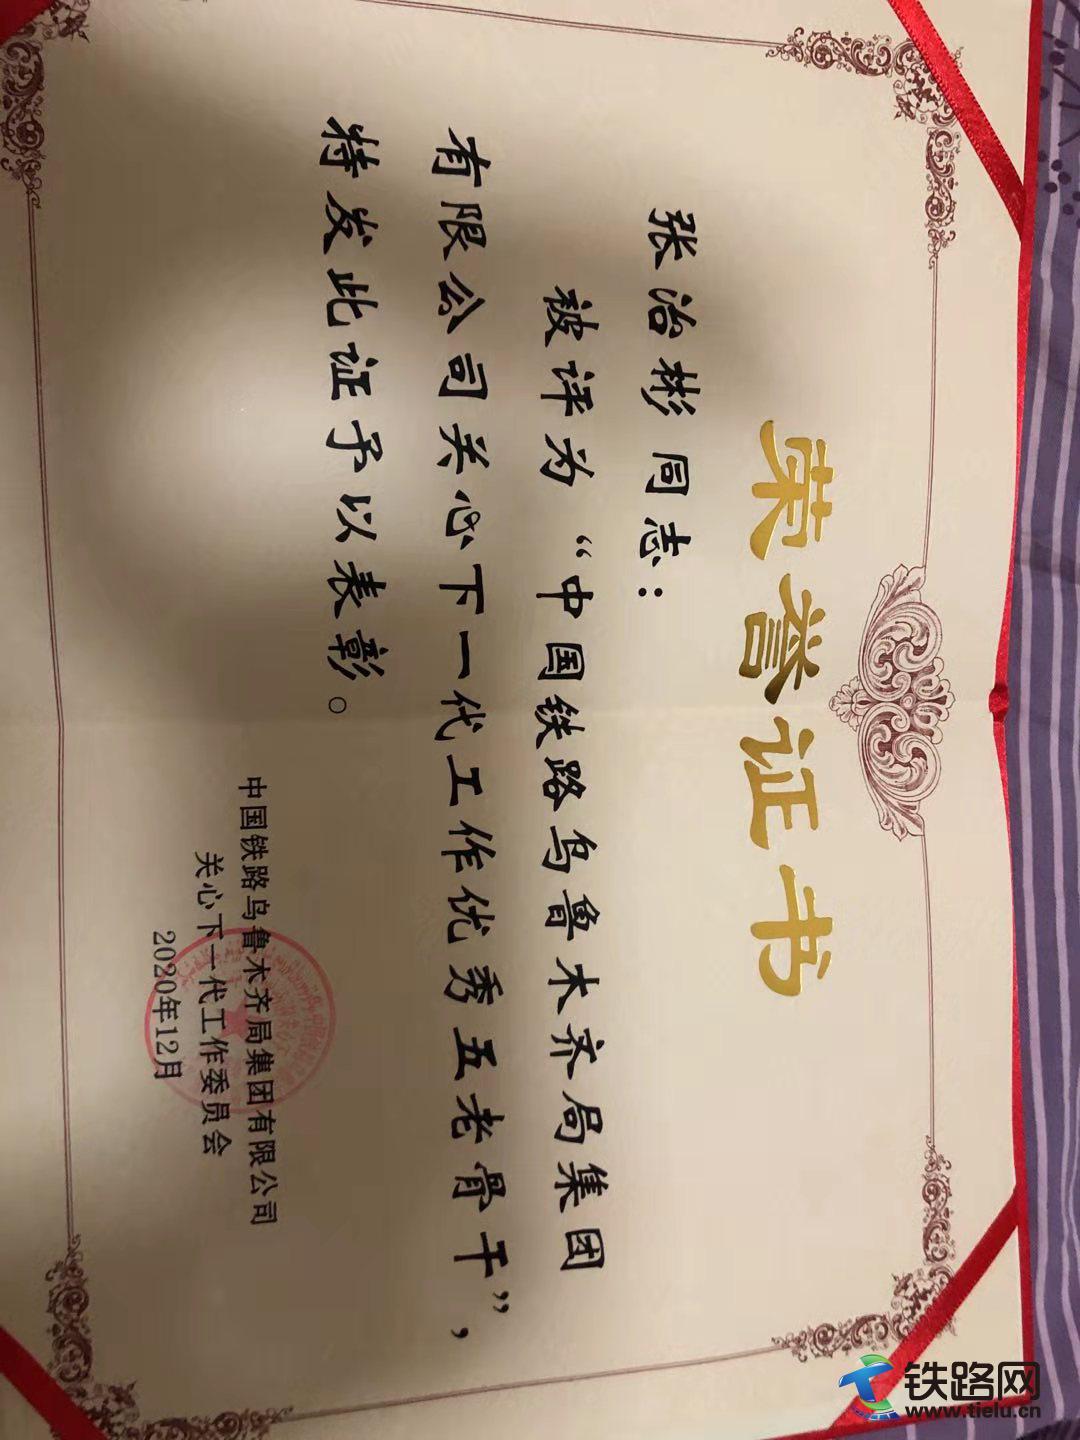 荣誉证书
张治彬同志：
被评为“中国铁路乌鲁木齐局集团
有限公司关心下一代工作优秀五老骨干”，
特发此证予以表彰。
中国铁路乌鲁木齐局集团有限公司
关心下一代工作委员会
2020年12月
铁路网
www.tielu.cn